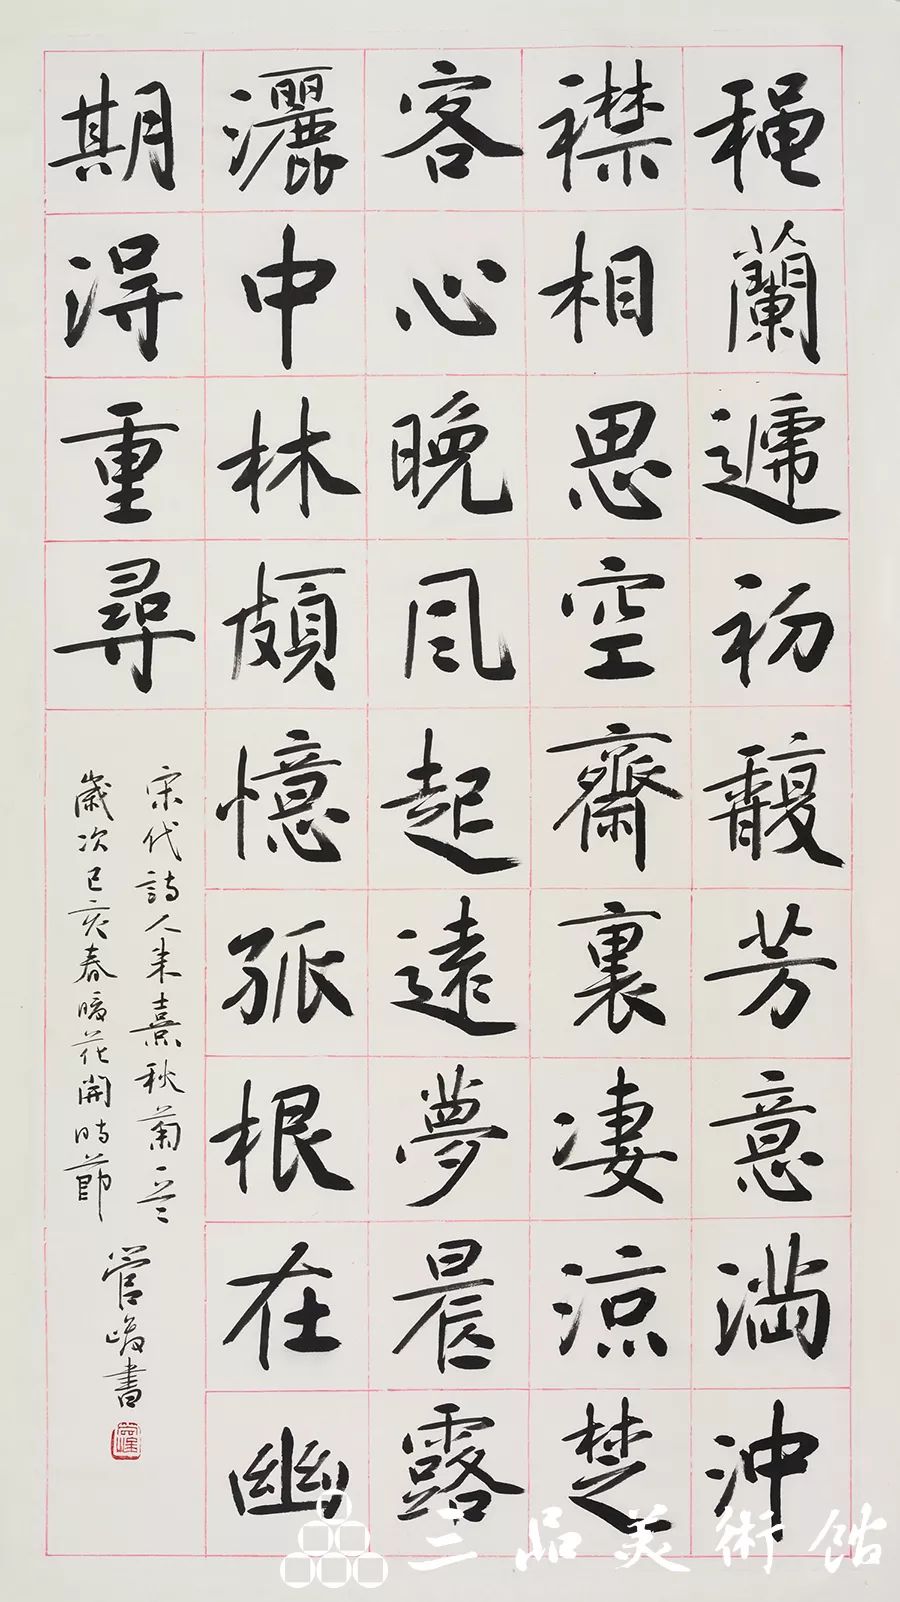 穐蘭遞初馥芳意滿沖
襟相思空齋裏凄涼楚
客心晚風起遠夢晨露
灑中林頗憶孤根在幽
期得重尋
宋代詩人朱熹秋蘭一首
歲次己亥春暖花開時節
管峻書
三品美術館